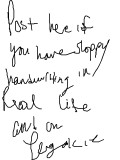 Post here if
you have sloppy
handwriting in
real life
and on